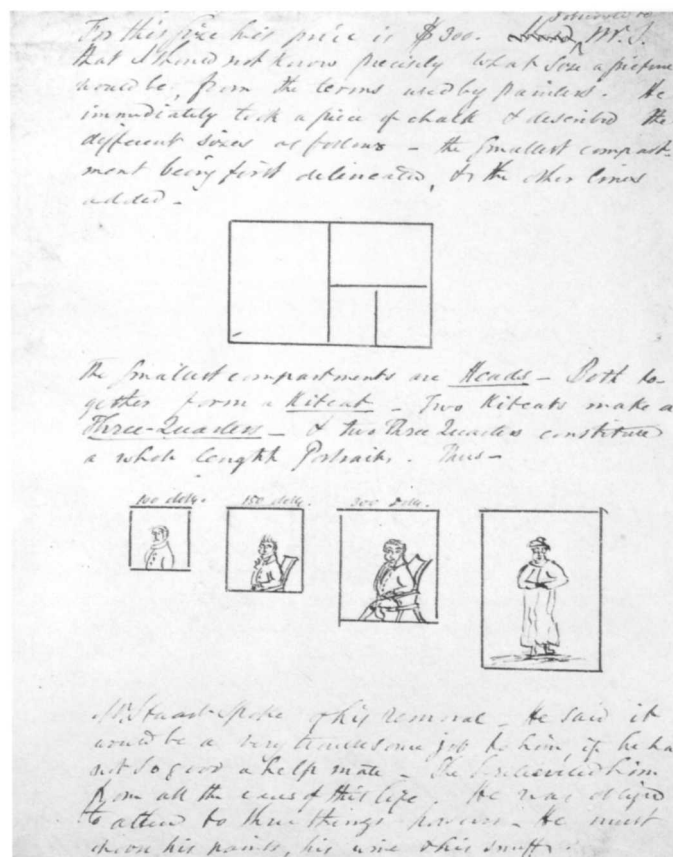 For this size his price is $300. Mr. S.
that I should not know precisely what size a picture
would be, from the terms used by painters. He
immediately took a piece of chalk & described the
different sizes as follows – the smallest compart-
ment being first delineated, & the other lines
added –
the smallest compartments are Heads – Both to-
gether form a Kitcat – Two Kitcats make a
Three-Quarters – & two Three Quarters constitute
a whole length Portrait. Thus –
100 dolls. 150 dolls 300 dolls.
Mr Stuart spoke of his removal – He said it
would be a very troublesome job to him, if he ha
not so good a help mate – She relieved him
from all the cares of this life. He was obliged
to attend to three things however – He must
his paints, his wine & his snuff.